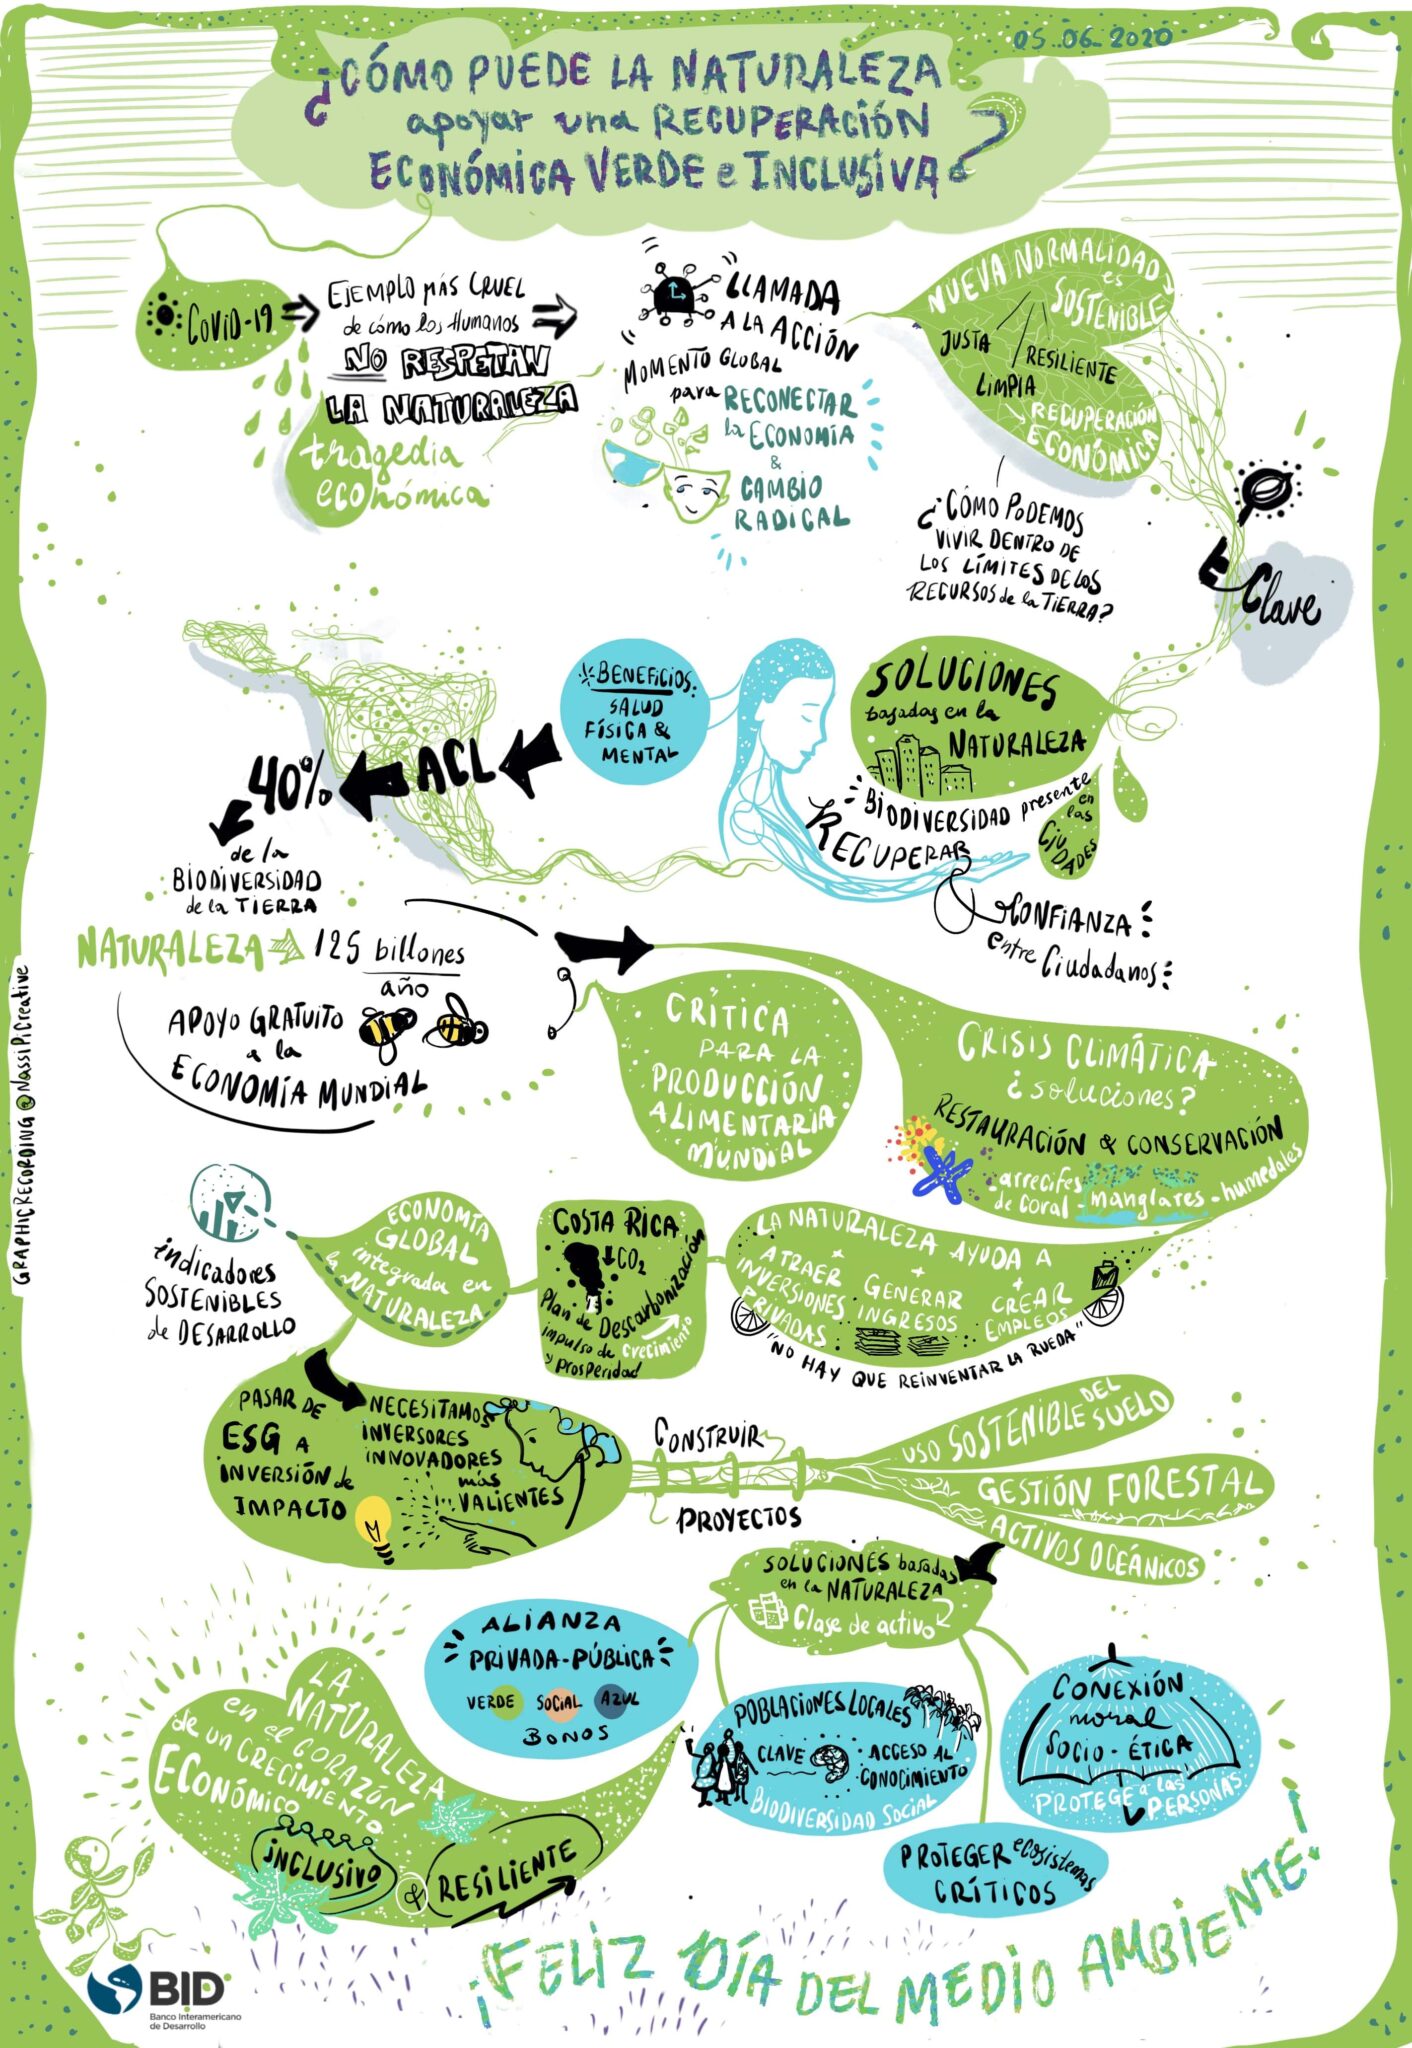 05.06.2020
¿CÓMO PUEDE LA NATURALEZA
apoyar una RECUPERACIÓN
ECONÓMICA VERDE e INCLUSIVA?
COVID-19
EJEMPLO MÁS CRUEL
de cómo los Humanos
NO RESPETAN
LA NATURALEZA
tragedia
económica
LLAMADA
A LA ACCIÓN
MOMENTO GLOBAL
para RECONECTAR
la ECONOMÍA
&
CAMBIO
RADICAL
NUEVA NORMALIDAD
es
SOSTENIBLE
JUSTA
LIMPIA
RESILIENTE
RECUPERACIÓN
ECONÓMICA
¿CÓMO PODEMOS
VIVIR DENTRO DE
LOS LÍMITES DE LOS
RECURSOS de la TIERRA?
Clave
SOLUCIONES
basadas en la
NATURALEZA
BIODIVERSIDAD presente
en
las
CIUDADES
RECUPERAR
CONFIANZA
entre Ciudadanos
BENEFICIOS:
SALUD
FÍSICA &
MENTAL
ACL
40%
de la
BIODIVERSIDAD
de la TIERRA
NATURALEZA 125 billones
año
APOYO GRATUITO
a la
ECONOMÍA MUNDIAL
CRÍTICA
PARA LA
PRODUCCIÓN
ALIMENTARIA
MUNDIAL
CRISIS CLIMÁTICA
¿soluciones?
RESTAURACIÓN & CONSERVACIÓN
-arrecifes
de coral
manglares
-humedales
GRAPHIC RECORDING @NassiPiCreative
indicadores
SOSTENIBLES
de DESARROLLO
ECONOMÍA
GLOBAL
integrada en
la NATURALEZA
COSTA RICA
CO2
Plan de Descarbonización
impulso de crecimiento
y prosperidad
LA NATURALEZA AYUDA A
+
ATRAER
INVERSIONES
PRIVADAS
+
GENERAR
INGRESOS
+
CREAR
EMPLEOS
"NO HAY QUE REINVENTAR LA RUEDA"
PASAR DE
ESG A
INVERSIÓN de
IMPACTO
NECESITAMOS
INVERSORES
INNOVADORES
más
VALIENTES
CONSTRUIR
PROYECTOS
USO SOSTENIBLE DEL SUELO
GESTIÓN FORESTAL
ACTIVOS OCEÁNICOS
SOLUCIONES basadas
en la NATURALEZA
Clase de activo
ALIANZA
PRIVADA-PÚBLICA
VERDE SOCIAL AZUL
BONOS
POBLACIONES LOCALES
CLAVE
ACCESO AL
CONOCIMIENTO
BIODIVERSIDAD SOCIAL
CONEXIÓN
moral
SOCIO-ÉTICA
PROTEGE a las
PERSONAS
PROTEGER ecosistemas
CRÍTICOS
LA
NATURALEZA
en el CORAZÓN
de un CRECIMIENTO
ECONÓMICO
iNCLUSIVO
&
RESILIENTE
¡FELIZ DÍA DEL MEDIO AMBIENTE!
BID
Banco Interamericano
de Desarrollo